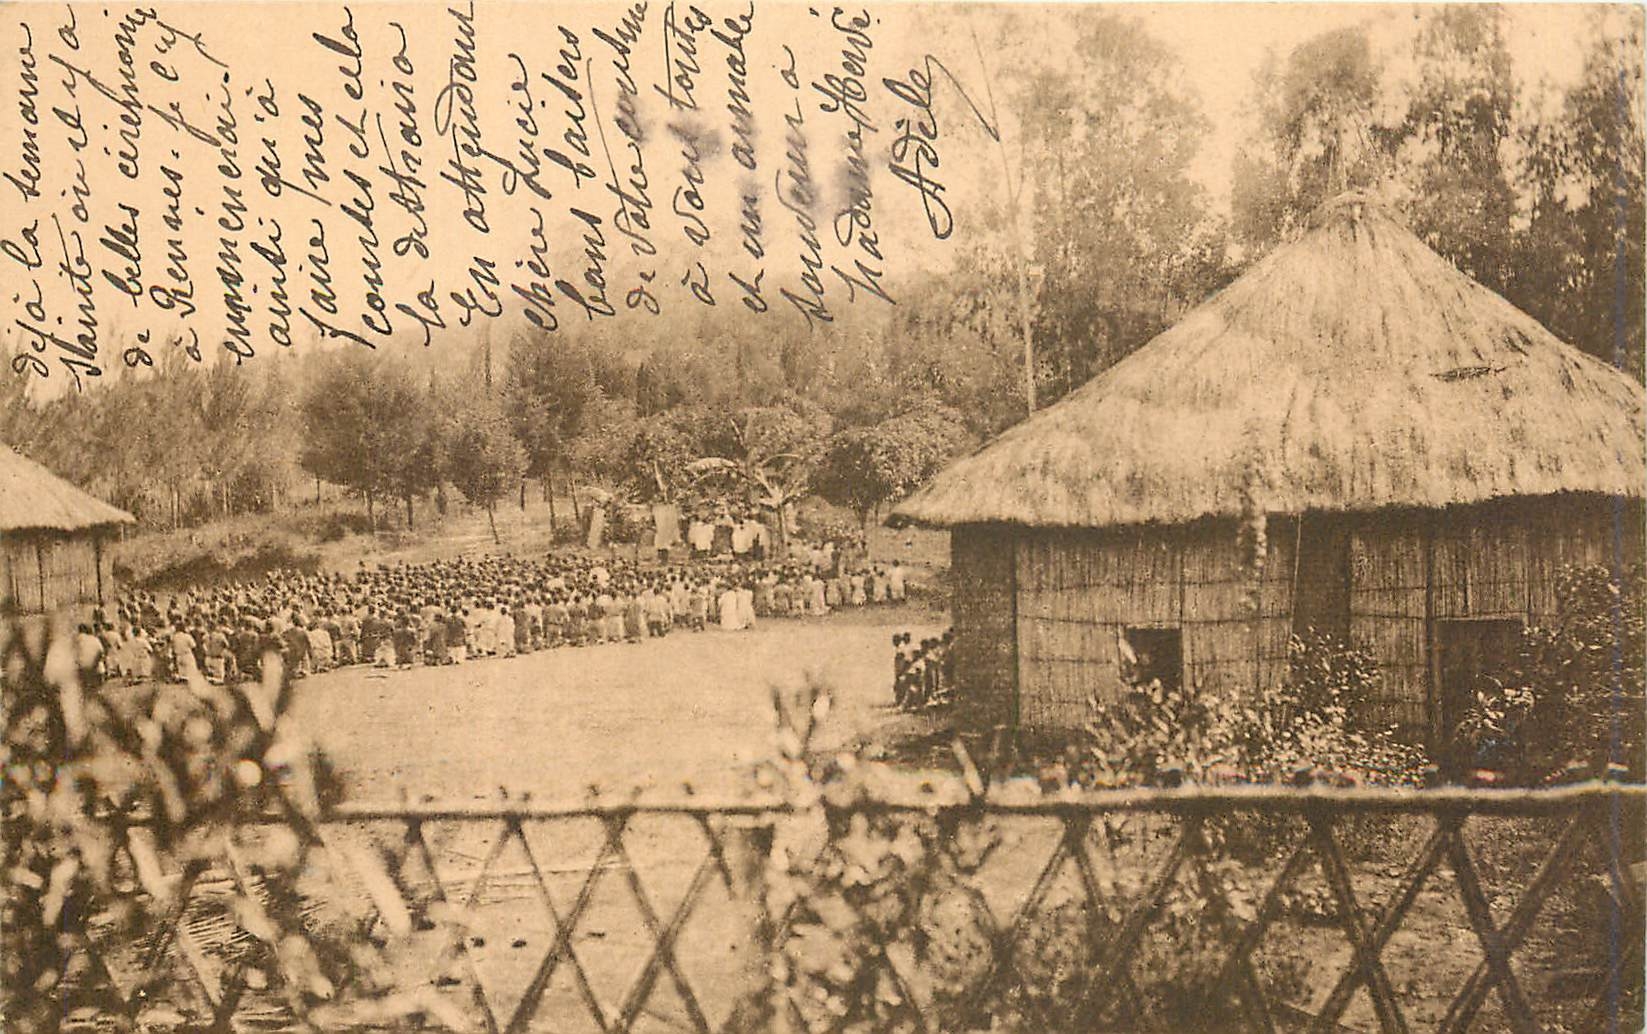 déjà la semaine
Sainte où il y a
de belles cérémonies
à Rennes. je l'y
emmenerai.
ainsi qu'à
faire mes
courses et cela
la distraira
En attendant
chère Lucie
bons baisers
de votre cousine
à vous toutes
et un aimable
souvenir à
Madame Hervé.
Adèle